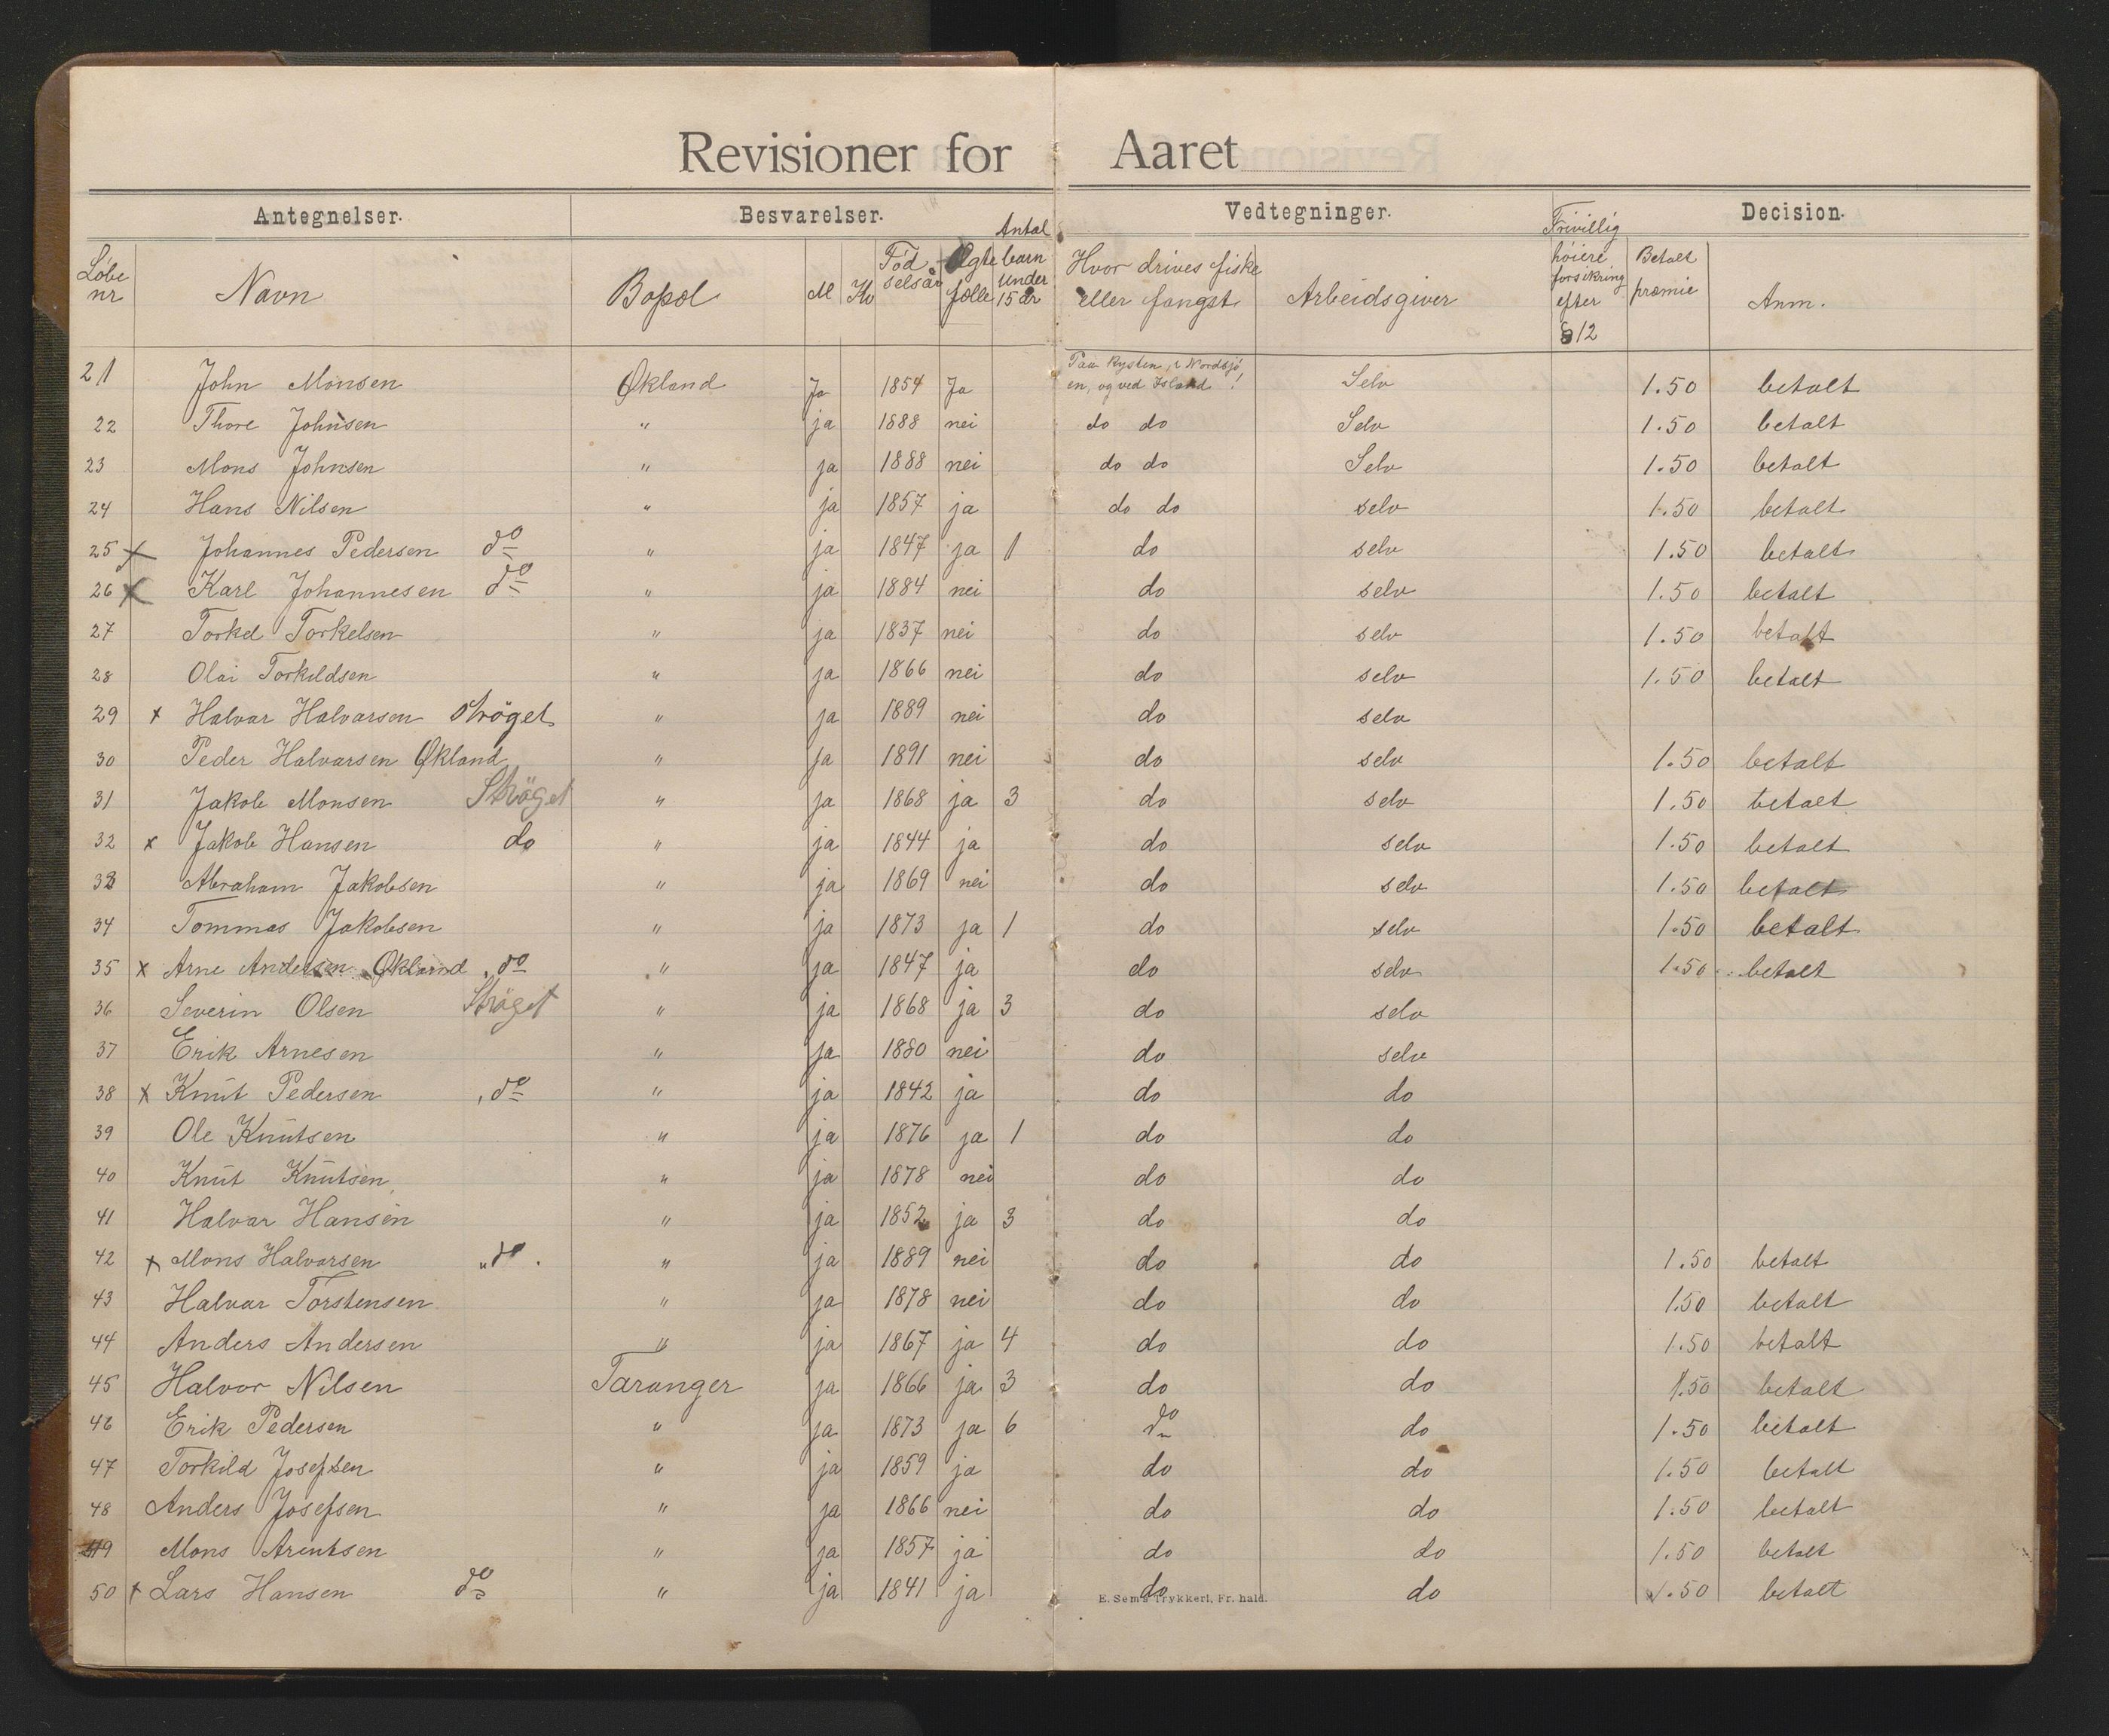 Revisioner for Aaret
Antegnelser. Besvarelser. Vedtegninger. Decision.
Løbe nr Navn Bopæl M Kv Fødselsår Ægtefælle Antal barn under 15 år Hvor drives fiske eller fangst Arbeidsgiver Frivillig høiere forsikring efter § 12 Betalt præmie Anm.
21 John Monsen Økland Ja 1854 Ja Paa kysten, i Nordsjøen, og ved Island! Selv 1.50 betalt
22 Thore Johnsen " ja 1888 nei do do Selv 1.50 betalt
23 Mons Johnsen " ja 1888 nei do do Selv 1.50 betalt
24 Hans Nilsen " ja 1857 ja do do selv 1.50 betalt
25 x Johannes Pedersen do " ja 1847 ja 1 do selv 1.50 betalt
26 x Karl Johannesen do " ja 1884 nei do selv 1.50 betalt
27 Torkel Torkelsen " ja 1837 nei do selv 1.50 betalt
28 Olai Torkildsen " ja 1866 nei do selv 1.50 betalt
29 x Halvar Halvarsen Strøget " ja 1889 nei do selv
30 Peder Halvarsen Økland " ja 1891 nei do selv 1.50 betalt
31 Jakob Monsen Strøget " ja 1868 ja 3 do selv 1.50 betalt
32 x Jakob Hansen do " ja 1844 ja do selv 1.50 betalt
33 Abraham Jakobsen " ja 1869 nei do selv 1.50 betalt
34 Tommas Jakobsen " ja 1873 ja 1 do selv 1.50 betalt
35 x Arne Andersen Økland , do " ja 1847 ja do selv 1.50 betalt
36 Severin Olsen Strøget " ja 1868 ja 3 do selv
37 Erik Arnesen " ja 1880 nei do selv
38 x Knut Pedersen , do " ja 1842 ja do do
39 Ole Knutsen " ja 1876 ja 1 do do
40 Knut Knutsen " ja 1878 nei do do
41 Halvar Hansen " ja 1852 ja 3 do do
42 x Mons Halvorsen „ do . " ja 1889 nei do do 1.50 betalt
43 Halvar Torstensen " ja 1878 nei do do 1.50 betalt
44 Anders Andersen " ja 1867 ja 4 do do 1.50 betalt
45 Halvor Nilsen Taranger ja 1866 ja 3 do do 1.50 betalt
46 Erik Pedersen " ja 1873 ja 6 do do 1.50 betalt
47 Torkild Josefsen " ja 1859 ja do do 1.50 betalt
48 Anders Josefsen " ja 1866 nei do do 1.50 betalt
49 Mons Arentsen " ja 1857 ja do do 1.50 betalt
50 x Lars Hansen do " ja 1841 ja do do 1.50 betalt
E. Sem's Trykkeri, Fr. hald.